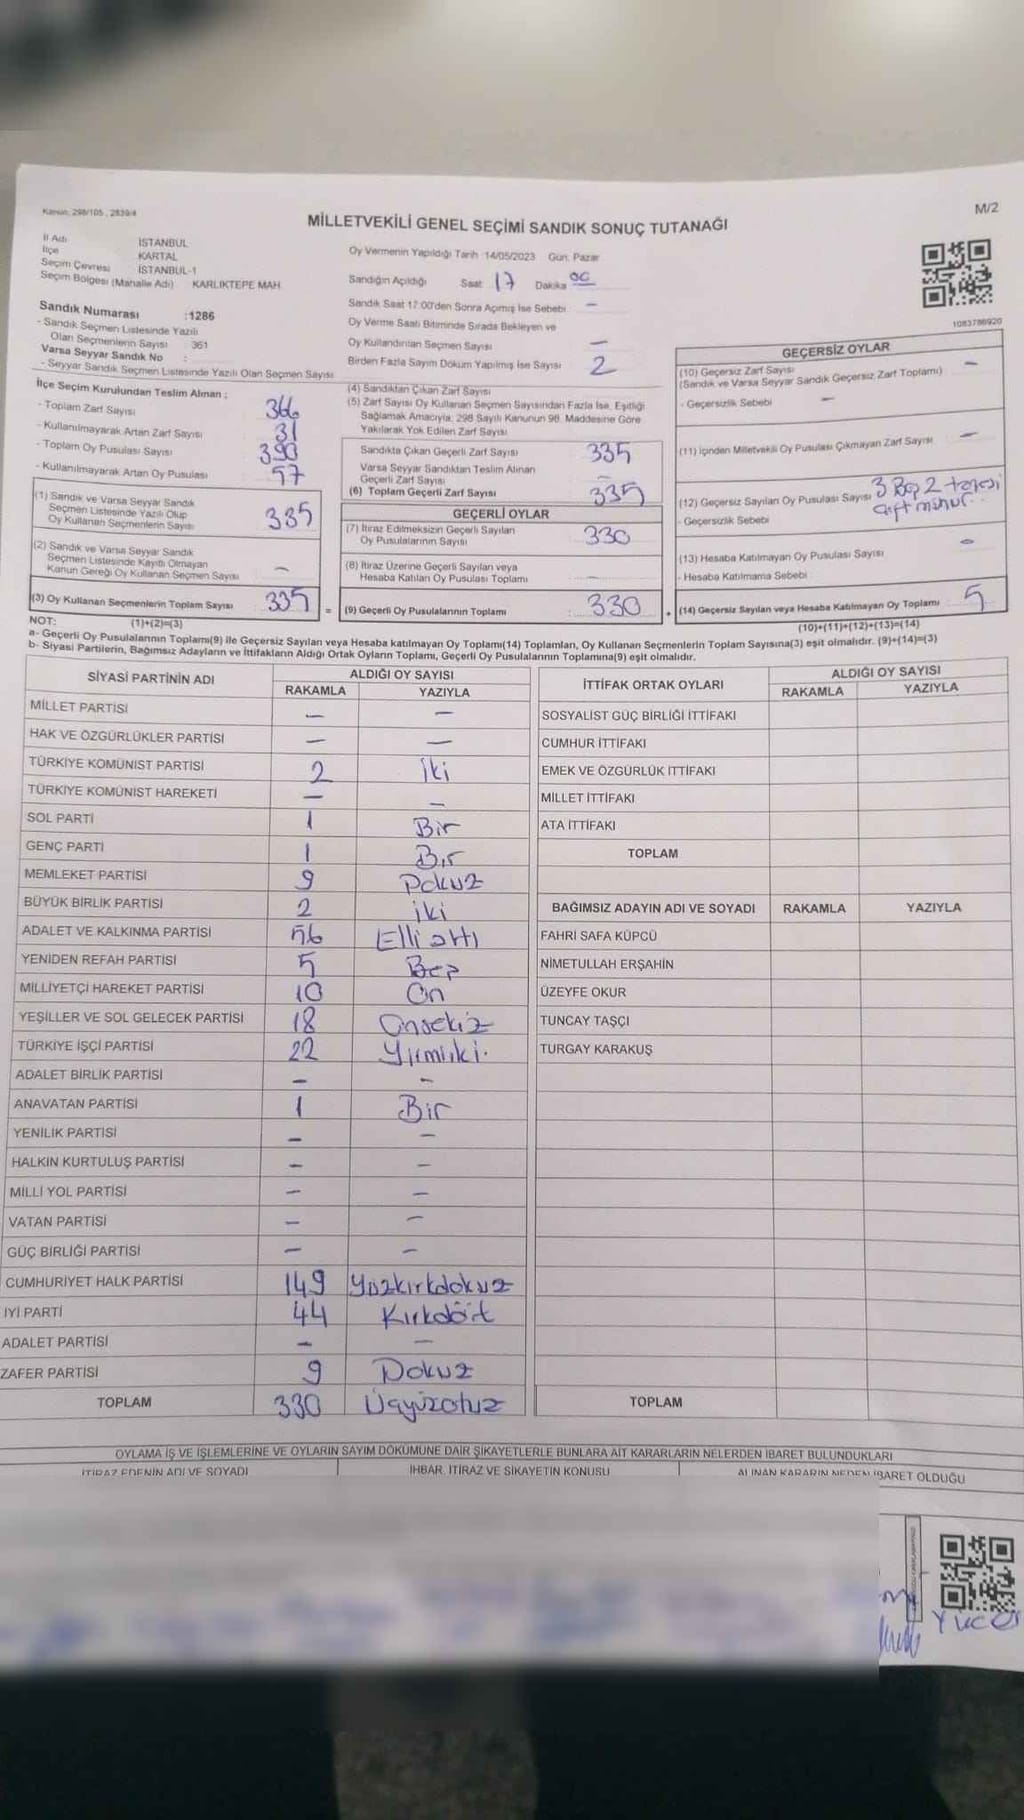 Kanun, 298/105 , 2839/4
M/2
MİLLETVEKİLİ GENEL SEÇİMİ SANDIK SONUÇ TUTANAĞI
İl Adı İSTANBUL
İlçe KARTAL
Seçim Çevresi İSTANBUL-1
Seçim Bölgesi (Mahalle Adı) KARLIKTEPE MAH
Sandık Numarası :1286
- Sandık Seçmen Listesinde Yazılı
Olan Seçmenlerin Sayısı 361
Varsa Seyyar Sandık No :
- Seyyar Sandık Seçmen Listesinde Yazılı Olan Seçmen Sayısı
Oy Vermenin Yapıldığı Tarih 14/05/2023 Gün: Pazar
Sandığın Açıldığı Saat 17 Dakika 00
Sandık Saat 17:00'den Sonra Açımış İse Sebebi -
Oy Verme Saati Bitiminde Sırada Bekleyen ve
Oy Kullandırılan Seçmen Sayısı -
Birden Fazla Sayım Döküm Yapılmış İse Sayısı 2
1083786920
İlçe Seçim Kurulundan Teslim Alınan ;
- Toplam Zarf Sayısı 366
- Kullanılmayarak Artan Zarf Sayısı 31
- Toplam Oy Pusulası Sayısı 390
- Kullanılmayarak Artan Oy Pusulası 57
(1) Sandık ve Varsa Seyyar Sandık
Seçmen Listesinde Yazılı Olup
Oy Kullanan Seçmenlerin Sayısı 335
(2) Sandık ve Varsa Seyyar Sandık
Seçmen Listesinde Kayıtlı Olmayan
Kanun Gereği Oy Kullanan Seçmen Sayısı -
(3) Oy Kullanan Seçmenlerin Toplam Sayısı 335 =
(4) Sandıktan Çıkan Zarf Sayısı
(5) Zarf Sayısı Oy Kullanan Seçmen Sayısından Fazla İse, Eşitliği
Sağlamak Amacıyla, 298 Sayılı Kanunun 98. Maddesine Göre
Yakılarak Yok Edilen Zarf Sayısı -
Sandıkta Çıkan Geçerli Zarf Sayısı 335
Varsa Seyyar Sandıktan Teslim Alınan
Geçerli Zarf Sayısı -
(6) Toplam Geçerli Zarf Sayısı 335
GEÇERLİ OYLAR
(7) İtiraz Edilmeksizin Geçerli Sayılan
Oy Pusulalarının Sayısı 330
(8) İtiraz Üzerine Geçerli Sayılan veya
Hesaba Katılan Oy Pusulası Toplamı -
(9) Geçerli Oy Pusulalarının Toplamı : 330 +
GEÇERSİZ OYLAR
(10) Geçersiz Zarf Sayısı -
(Sandık ve Varsa Seyyar Sandık Geçersiz Zarf Toplamı)
- Geçersizlik Sebebi -
(11) İçinden Milletvekili Oy Pusulası Çıkmayan Zarf Sayısı -
(12) Geçersiz Sayılan Oy Pusulası Sayısı 3 Boş 2 tanesi
- Geçersizlik Sebebi çift mühür.
(13) Hesaba Katılmayan Oy Pusulası Sayısı -
- Hesaba Katılmama Sebebi
(14) Geçersiz Sayılan veya Hesaba Katılmayan Oy Toplamı : 5
NOT: (1)+(2)=(3) (10)+(11)+(12)+(13)=(14)
a- Geçerli Oy Pusulalarının Toplamı(9) ile Geçersiz Sayılan veya Hesaba katılmayan Oy Toplamı(14) Toplamları, Oy Kullanan Seçmenlerin Toplam Sayısına(3) eşit olmalıdır. (9)+(14)=(3)
b- Siyasi Partilerin, Bağımsız Adayların ve İttifakların Aldığı Ortak Oyların Toplamı, Geçerli Oy Pusulalarının Toplamına(9) eşit olmalıdır.
SİYASİ PARTİNİN ADI ALDIĞI OY SAYISI
RAKAMLA YAZIYLA
MİLLET PARTİSİ - -
HAK VE ÖZGÜRLÜKLER PARTİSİ - -
TÜRKİYE KOMÜNİST PARTİSİ 2 İki
TÜRKİYE KOMÜNİST HAREKETİ - -
SOL PARTİ 1 Bir
GENÇ PARTİ 1 Bir
MEMLEKET PARTİSİ 9 Dokuz
BÜYÜK BİRLİK PARTİSİ 2 iki
ADALET VE KALKINMA PARTİSİ 56 Elli altı
YENİDEN REFAH PARTİSİ 5 Beş
MİLLİYETÇİ HAREKET PARTİSİ 10 On
YEŞİLLER VE SOL GELECEK PARTİSİ 18 Onsekiz
TÜRKİYE İŞÇİ PARTİSİ 22 Yirmiiki.
ADALET BİRLİK PARTİSİ - -
ANAVATAN PARTİSİ 1 Bir
YENİLİK PARTİSİ - -
HALKIN KURTULUŞ PARTİSİ - -
MİLLİ YOL PARTİSİ - -
VATAN PARTİSİ - -
GÜÇ BİRLİĞİ PARTİSİ - -
CUMHURİYET HALK PARTİSİ 149 Yüzkırkdokuz
İYİ PARTİ 44 Kırkdört
ADALET PARTİSİ - -
ZAFER PARTİSİ 9 Dokuz
TOPLAM 330 Üçyüzotuz
İTTİFAK ORTAK OYLARI ALDIĞI OY SAYISI
RAKAMLA YAZIYLA
SOSYALİST GÜÇ BİRLİĞİ İTTİFAKI
CUMHUR İTTİFAKI
EMEK VE ÖZGÜRLÜK İTTİFAKI
MİLLET İTTİFAKI
ATA İTTİFAKI
TOPLAM
BAĞIMSIZ ADAYIN ADI VE SOYADI RAKAMLA YAZIYLA
FAHRİ SAFA KÜPCÜ
NİMETULLAH ERŞAHİN
ÜZEYFE OKUR
TUNCAY TAŞÇI
TURGAY KARAKUŞ
TOPLAM
OYLAMA İŞ VE İŞLEMLERİNE VE OYLARIN SAYIM DÖKÜMÜNE DAİR ŞİKAYETLERLE BUNLARA AİT KARARLARIN NELERDEN İBARET BULUNDUKLARI
İTİRAZ EDENİN ADI VE SOYADI İHBAR, İTİRAZ VE ŞİKAYETİN KONUSU ALINAN KARARIN NEDEN İBARET OLDUĞU